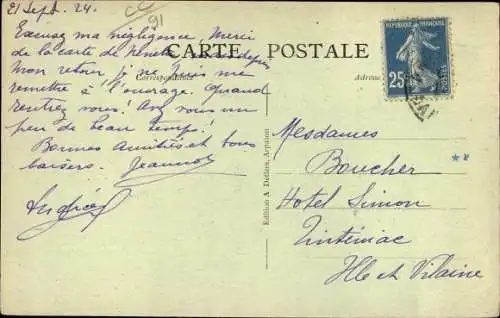 21 Sept. 24.
91
Excusez ma négligence, Merci
de la carte de
CARTE POSTALE
Mon retour, j ne puis me
Correspondance
Adresse
remettre à l'ouvrage. Quand
rentrez vous? Avez vous un
peu de beau temps?
Bonnes Amitiés et bons
baisers. Jeannot
RÉPUBLIQUE FRANÇAISE
25c
POSTES
Edition A Detlers, Arpajon
Mesdames
Boucher
Hotel Simon
Tinténiac
Ille et Vilaine